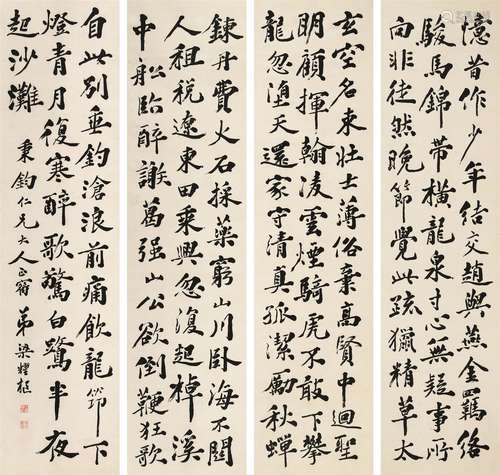 憶昔作少年結交趙與燕金羈絡
駿馬錦帶橫龍泉寸心無疑事所
向非徒然晚節覺此疏獵精草太
玄空名束壯士薄俗棄高賢中迴聖
明顧揮翰凌雲煙騎虎不敢下攀
龍忽墮天還家守清真孤潔勵秋蟬
鍊丹費火石採藥窮山川卧海不關
人租稅遼東田乘興忽復起棹溪
中船臨醉謝葛强山公欲倒鞭狂歌
自此別垂釣滄浪前痛飲龍筇下
燈青月復寒醉歌驚白鷺半夜
起沙灘
秉鈞仁兄大人正 弟梁耀樞